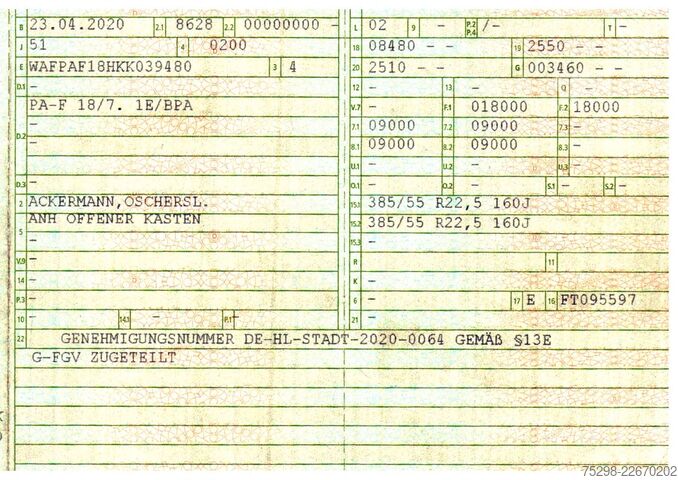 B 23.04.2020 2.1 8628 2.2 00000000 -
L 02 9 - P.2 P.4 /- T -
J 51 4 0200
18 08480 - - 19 2550 - -
E WAFPAF18HKK039480 3 4
20 2510 - - G 003460 - -
D.1 -
12 - 13 - Q -
PA-F 18/7. 1E/BPA
V.7 - F.1 018000 F.2 18000
D.2 -
7.1 09000 7.2 09000 7.3 -
8.1 09000 8.2 09000 8.3 -
U.1 - U.2 - U.3 -
D.3 -
O.1 - O.2 - S.1 - S.2 -
2 ACKERMANN,OSCHERSL.
15.1 385/55 R22,5 160J
ANH OFFENER KASTEN
15.2 385/55 R22,5 160J
5 -
15.3 -
V.9 -
R 11
14 -
K -
P.3 -
6 - 17 E 16 FT095597
10 - 14.1 - P.1 -
21 -
22 GENEHMIGUNGSNUMMER DE-HL-STADT-2020-0064 GEMÄß §13E
G-FGV ZUGETEILT
75298-22670202